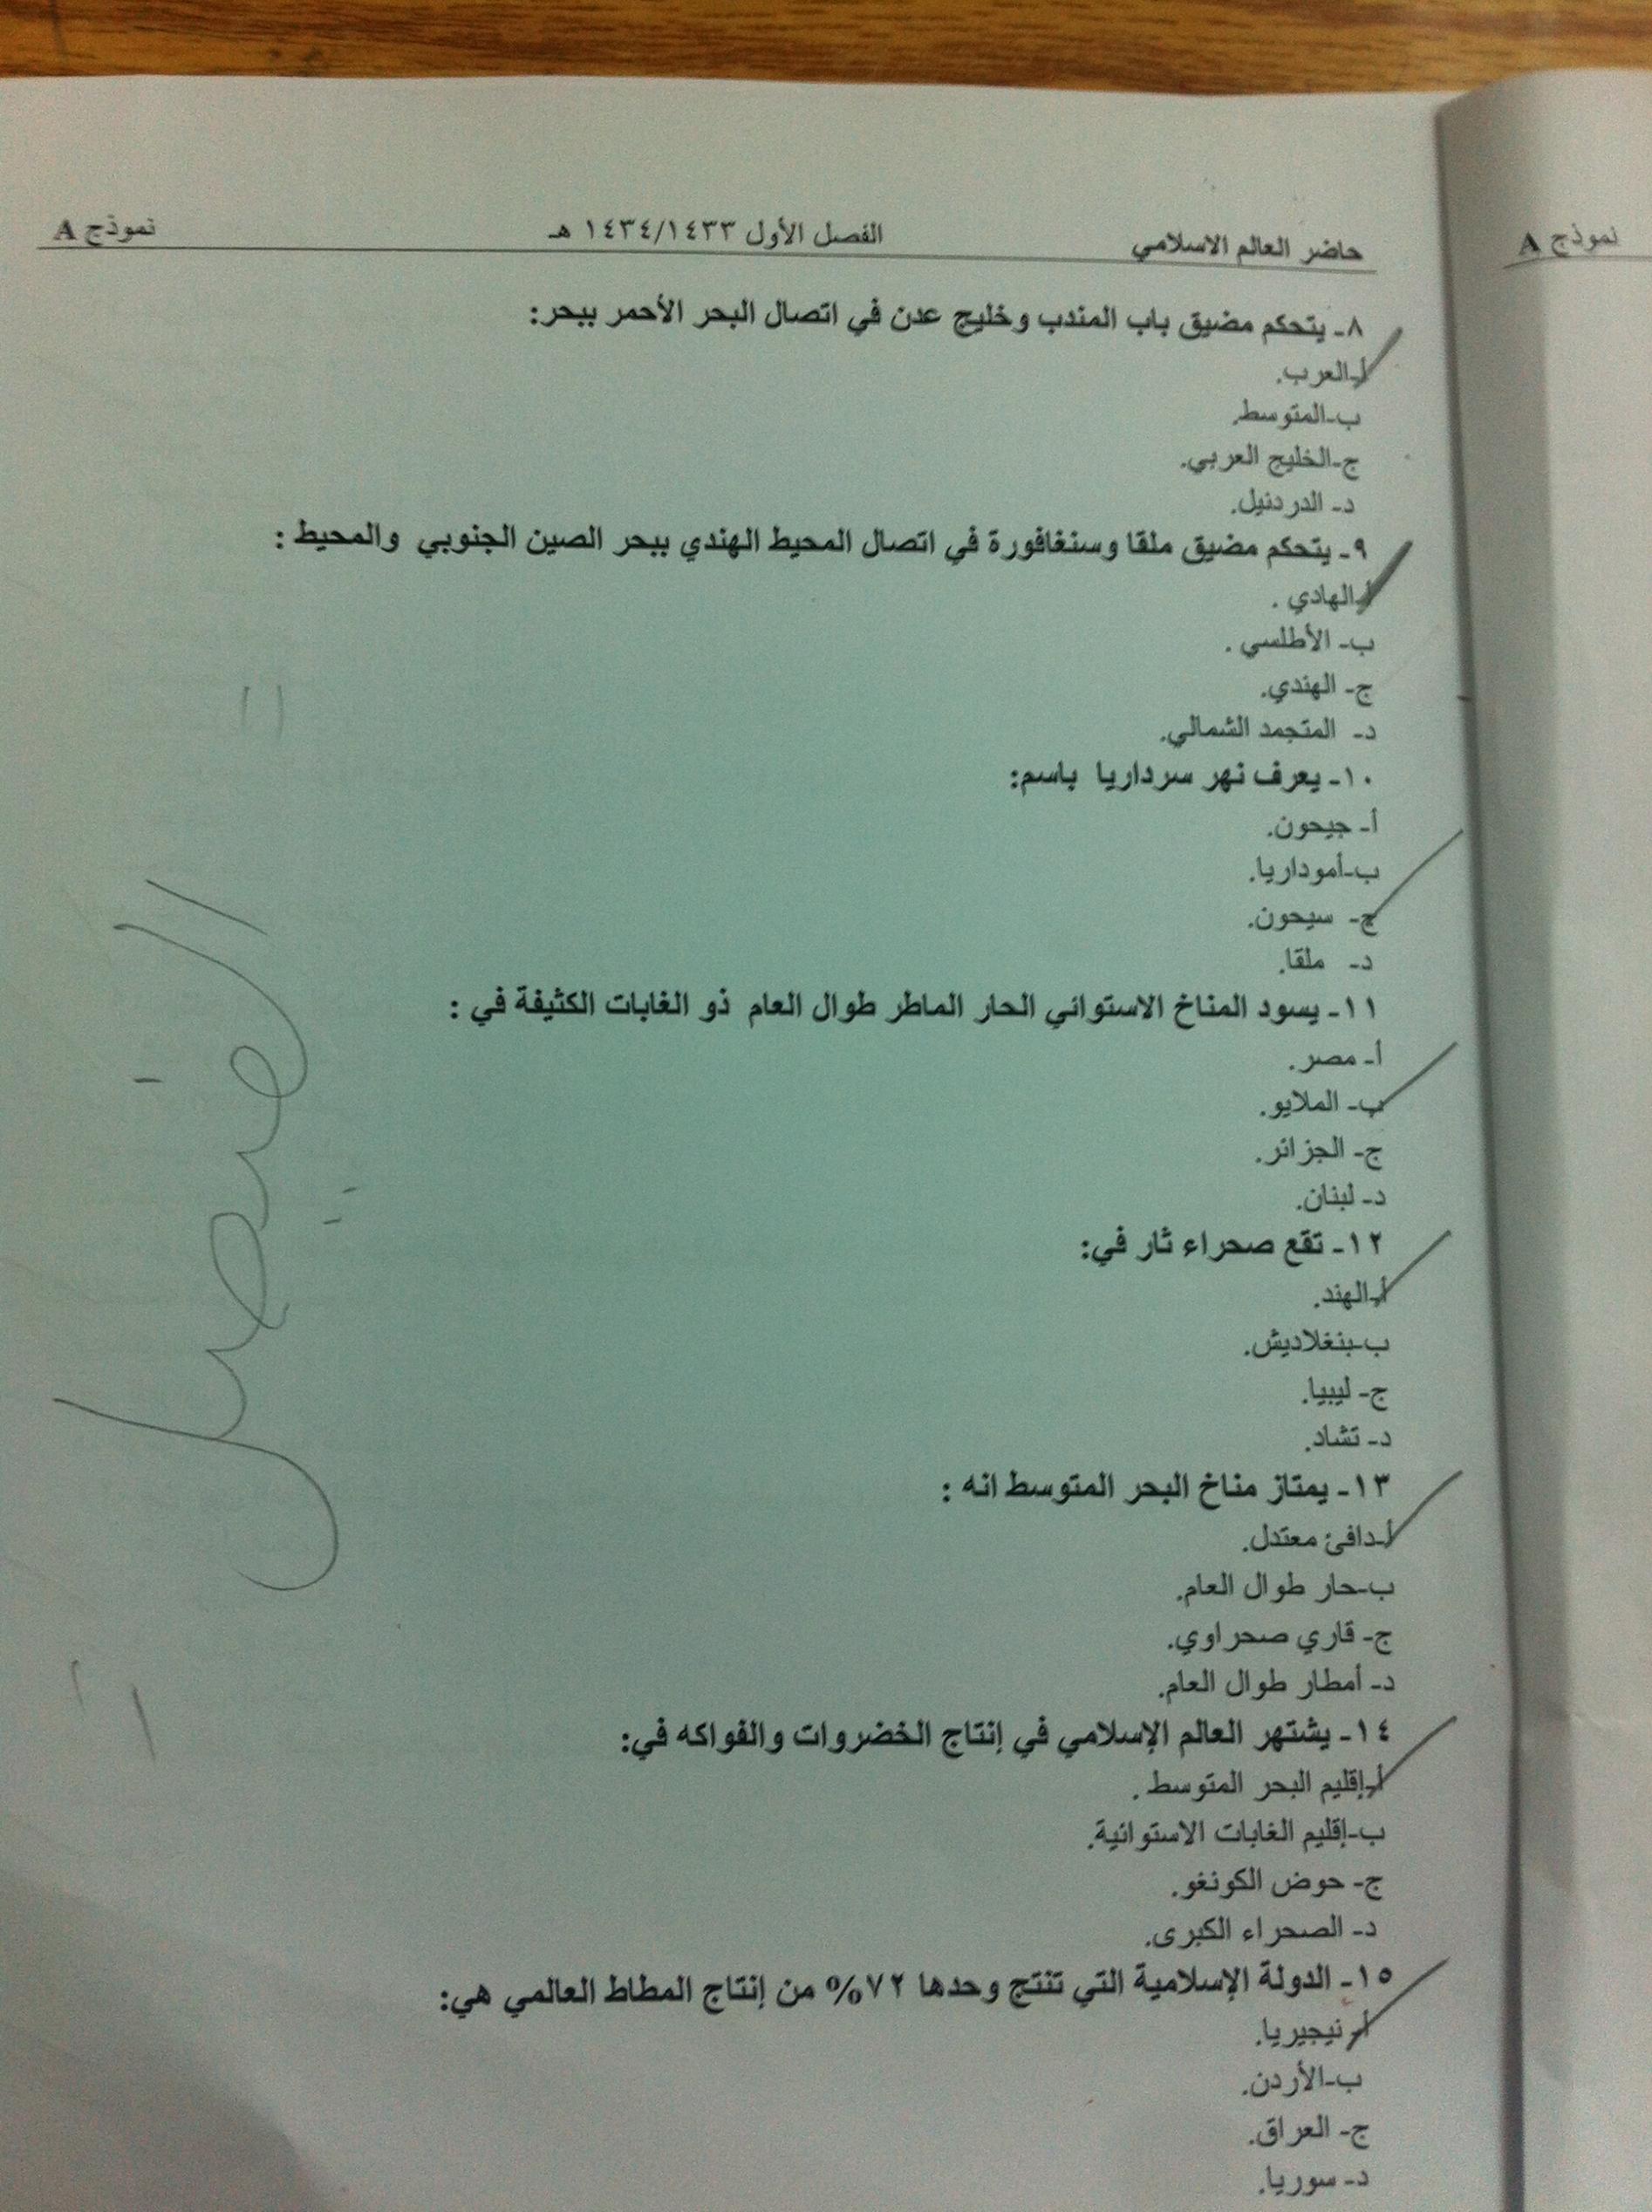 حاضر العالم الاسلامي الفصل الأول ١٤٣٤/١٤٣٣ هـ نموذج A
نموذج A
٨- يتحكم مضيق باب المندب وخليج عدن في اتصال البحر الأحمر ببحر:
أ-العرب.
ب-المتوسط.
ج-الخليج العربي.
د- الدردنيل.
٩- يتحكم مضيق ملقا وسنغافورة في اتصال المحيط الهندي ببحر الصين الجنوبي والمحيط :
أ-الهادي .
ب- الأطلسي .
ج- الهندي.
د- المتجمد الشمالي.
١٠- يعرف نهر سرداريا باسم:
أ- جيحون.
ب-أموداريا.
ج- سيحون.
د- ملقا.
١١- يسود المناخ الاستوائي الحار الماطر طوال العام ذو الغابات الكثيفة في :
أ- مصر.
ب- الملايو.
ج- الجزائر.
د- لبنان.
١٢- تقع صحراء ثار في:
أ-الهند.
ب-بنغلاديش.
ج- ليبيا.
د- تشاد.
١٣- يمتاز مناخ البحر المتوسط انه :
أ-دافئ معتدل.
ب-حار طوال العام.
ج- قاري صحراوي.
د- أمطار طوال العام.
١٤- يشتهر العالم الإسلامي في إنتاج الخضروات والفواكه في:
أ-إقليم البحر المتوسط .
ب-إقليم الغابات الاستوائية.
ج- حوض الكونغو.
د- الصحراء الكبرى.
١٥- الدولة الإسلامية التي تنتج وحدها ٧٢% من إنتاج المطاط العالمي هي:
أ- نيجيريا.
ب-الأردن.
ج- العراق.
د- سوريا.
الفيصل